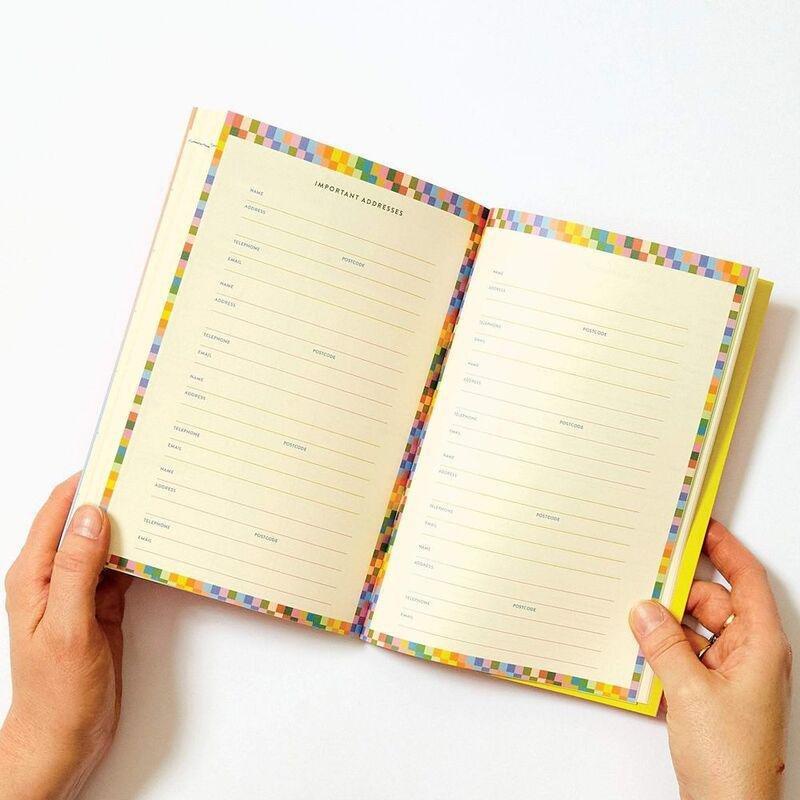 IMPORTANT ADDRESSES
NAME
ADDRESS
TELEPHONE POSTCODE
EMAIL
NAME
ADDRESS
TELEPHONE POSTCODE
EMAIL
NAME
ADDRESS
TELEPHONE POSTCODE
EMAIL
NAME
ADDRESS
TELEPHONE POSTCODE
EMAIL
NAME
ADDRESS
TELEPHONE POSTCODE
EMAIL
NAME
ADDRESS
TELEPHONE POSTCODE
EMAIL
NAME
ADDRESS
TELEPHONE POSTCODE
EMAIL
NAME
ADDRESS
TELEPHONE POSTCODE
EMAIL